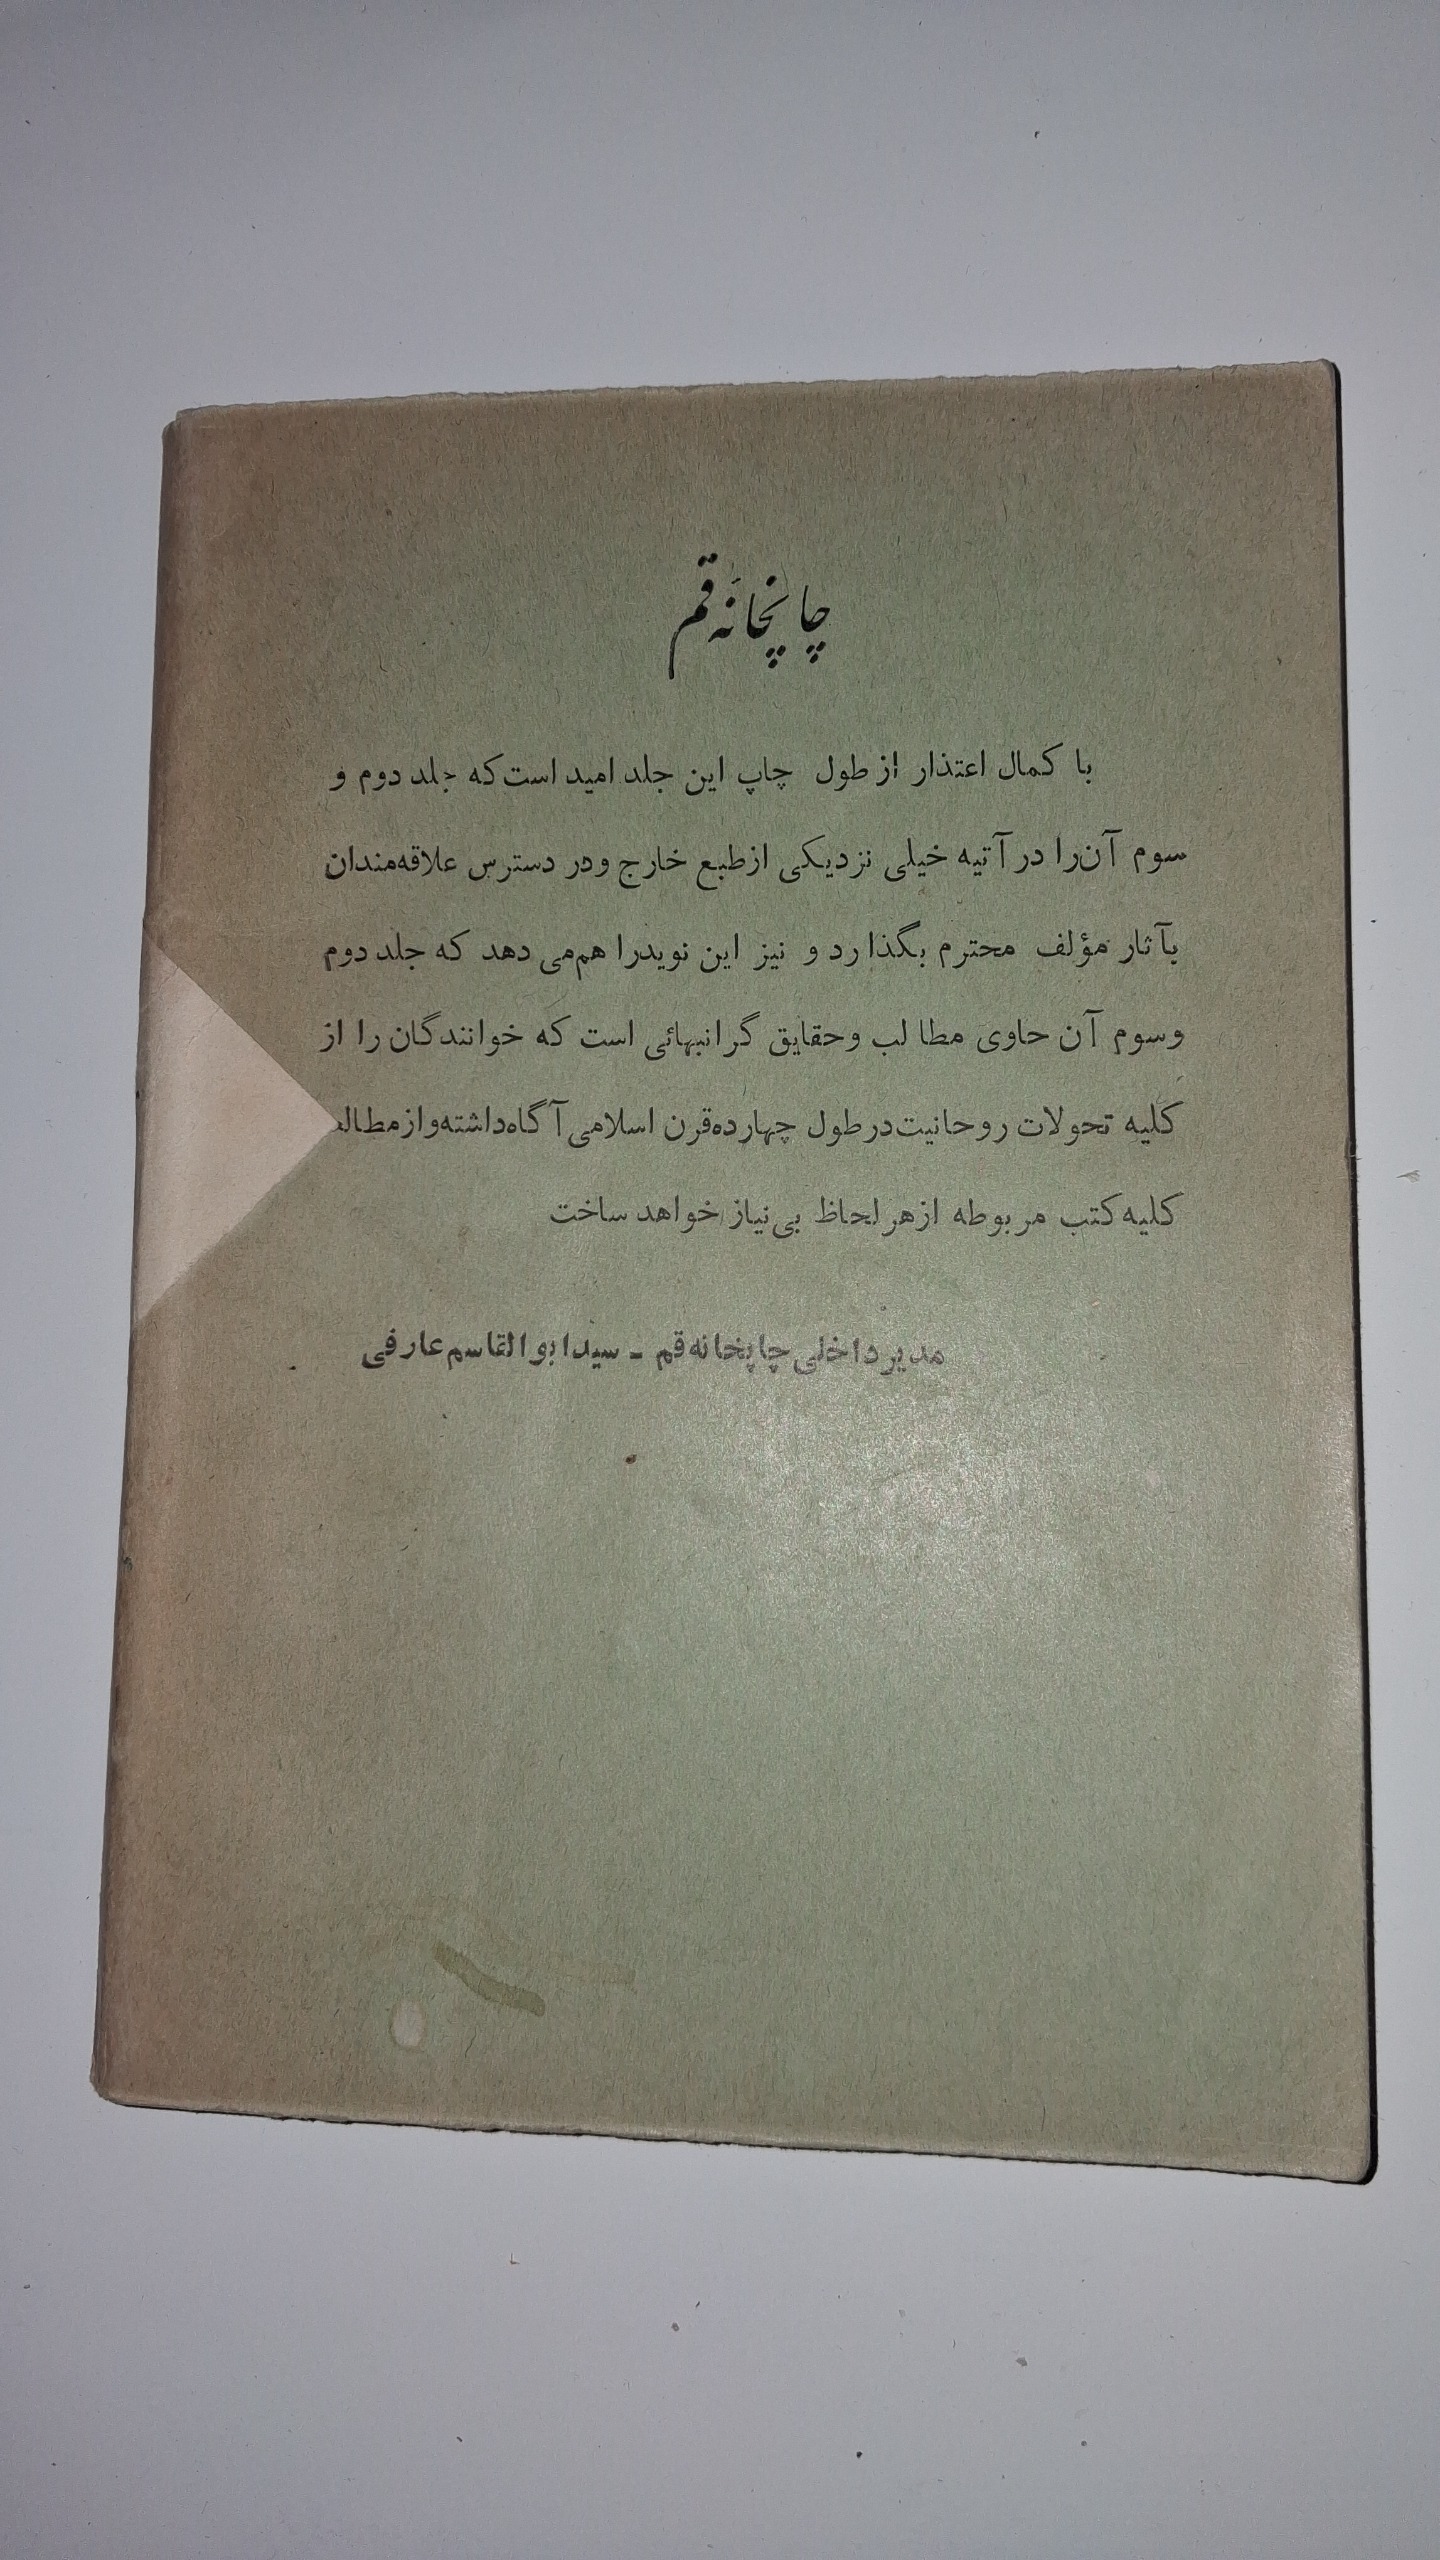 چاپخانه قم
با کمال اعتذار از طول چاپ این جلد امید است که جلد دوم و
سوم آن را در آتیه خیلی نزدیکی از طبع خارج و در دسترس علاقه‌مندان
بآثار مؤلف محترم بگذارد و نیز این نوید را هم می دهد که جلد دوم
و سوم آن حاوی مطالب و حقایق گرانبهائی است که خوانندگان را از
کلیه تحولات روحانیت در طول چهارده قرن اسلامی آگاه داشته و از
کلیه کتب مربوطه از هر لحاظ بی نیاز خواهد ساخت
مدیر داخلی چاپخانه قم - سید ابوالقاسم عارفی